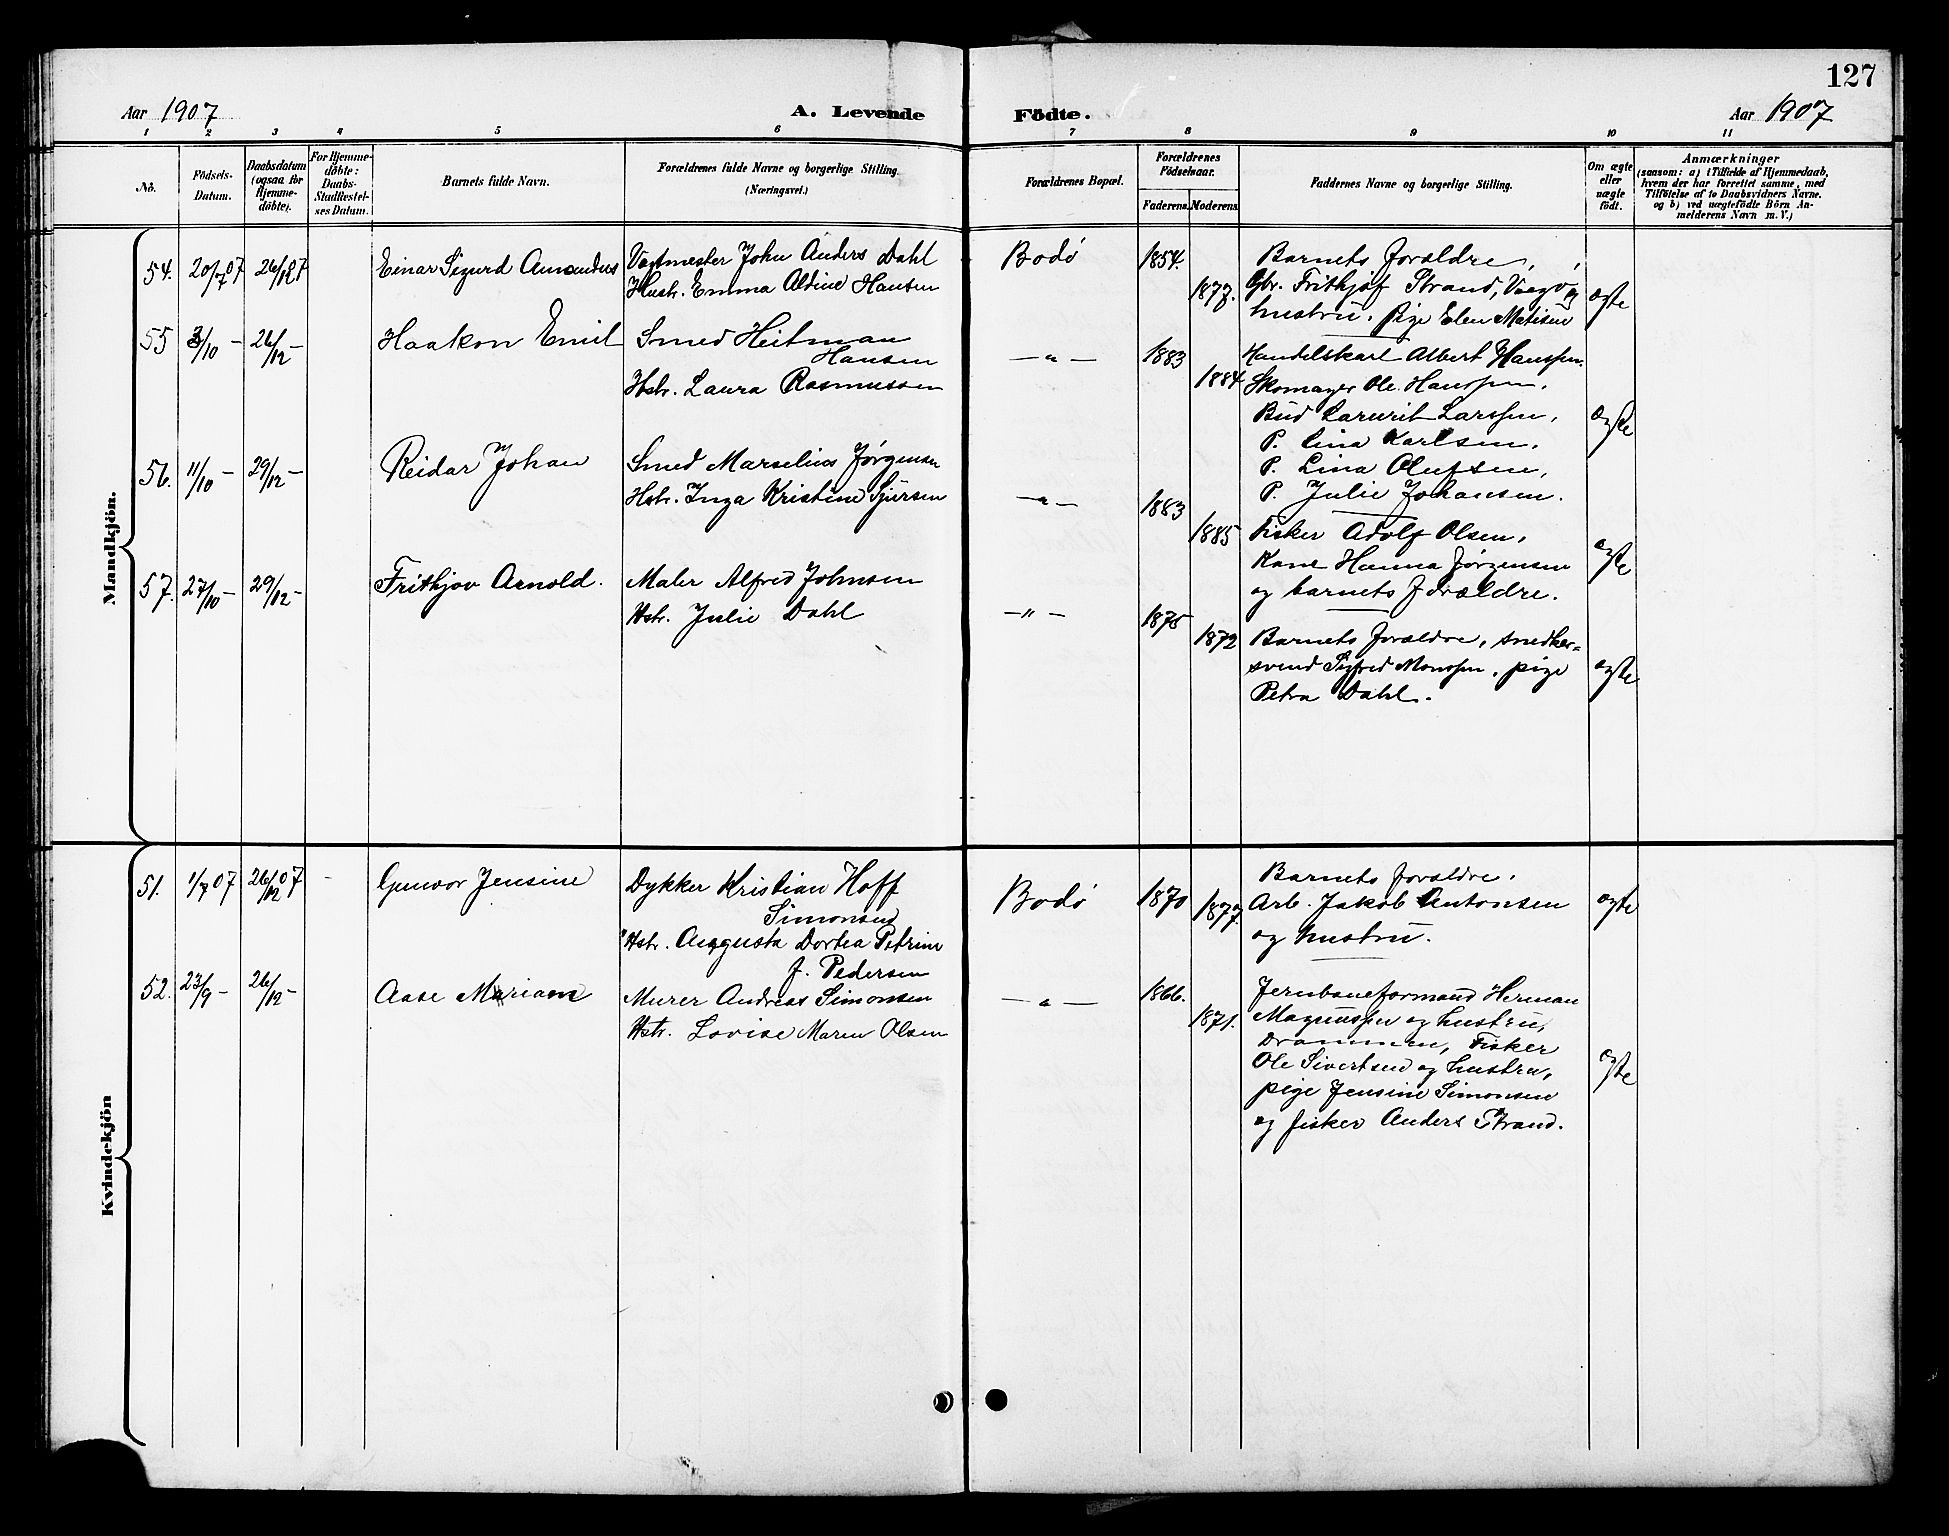 127
Aar 1907
A. Levende
Födte.
Aar 1907
1 2 3 4 5 6 7 8 9 10 11
No.
Födsels-
Datum.
Daabsdatum
(ogsaa for
Hjemme-
döbte).
For Hjemme-
döbte:
Daabs-
Stadfæstel-
ses Datum.
Barnets fulde Navn.
Forældrenes fulde Navne og borgerlige Stilling
(Næringsvei.)
Forældrenes Bopæl.
Forældrenes
Födselsaar.
Faderens. Moderens.
Faddernes Navne og borgerlige Stilling.
Om ægte
eller
uægte
födt.
Anmærkninger
(saasom: a) i Tilfælde af Hjemmedaab,
hvem der har forrettet samme, med
Tilföielse af to Daabsvidners Navne.
og b) ved uægtefödte Börn An-
melderens Navn m. V.)
Mandkjön.
54. 20/7 07
Einar Sigurd Amandus
John Anders Dahl
Hustr. Emma Aldine Hansen
Bodø
1854.
1877.
Barnets forældre,
Gbr. Frithjof Strand,
hustru. pige Elen Matisen
ægte
55 3/10 - 26/12 -
Haakon Emil
Smed Heitman
Hansen
Hstr. Laura Rasmussen
— " —
1883
1884
Handelskarl Albert Hanssen.
Skomager Ole Hanssen.
Bud Larssen,
P. Lina Karlsen.
P. Lina Olufsen,
P. Julie Johansen.
ægte
56. 11/10 - 29/12 -
Reidar Johan
Smed Marselius Jørgensen
Hstr. Inga Kristine Sjursen
— " —
1883
1885
Fisker Adolf Olsen,
Kone Hanna Jørgensen
og barnets forældre.
ægte
57. 27/10 - 29/12 -
Frithjov Arnold.
Maler Alfred Johnsen
Hstr. Julie Dahl
— " —
1875
1872
Barnets forældre, snedker-
svend Sigfred Monssen, pige
Petra Dahl.
ægte
Kvindekjön
51. 1/7 07 26/12 07 -
Gunvor Jensine
Dykker Kristian Hoff
Simonsen
Hstr. Augusta Dortea Petrine
f. Pedersen
Bodø
1870
1877.
Barnets forældre.
Arb. Jakob Antonsen
og hustru.
ægte
52. 23/9 - 26/12 -
Aase Mariane
Murer Andreas Simonsen
Hstr. Lovise Maren Olsen
— " —
1866.
1871.
Jernbaneformand Herman
Magnussen og hustru,
Drammen, Fisker
Ole Sivertsen og hustru,
pige Jensine Simonsen
og fisker Anders Strand.
ægte